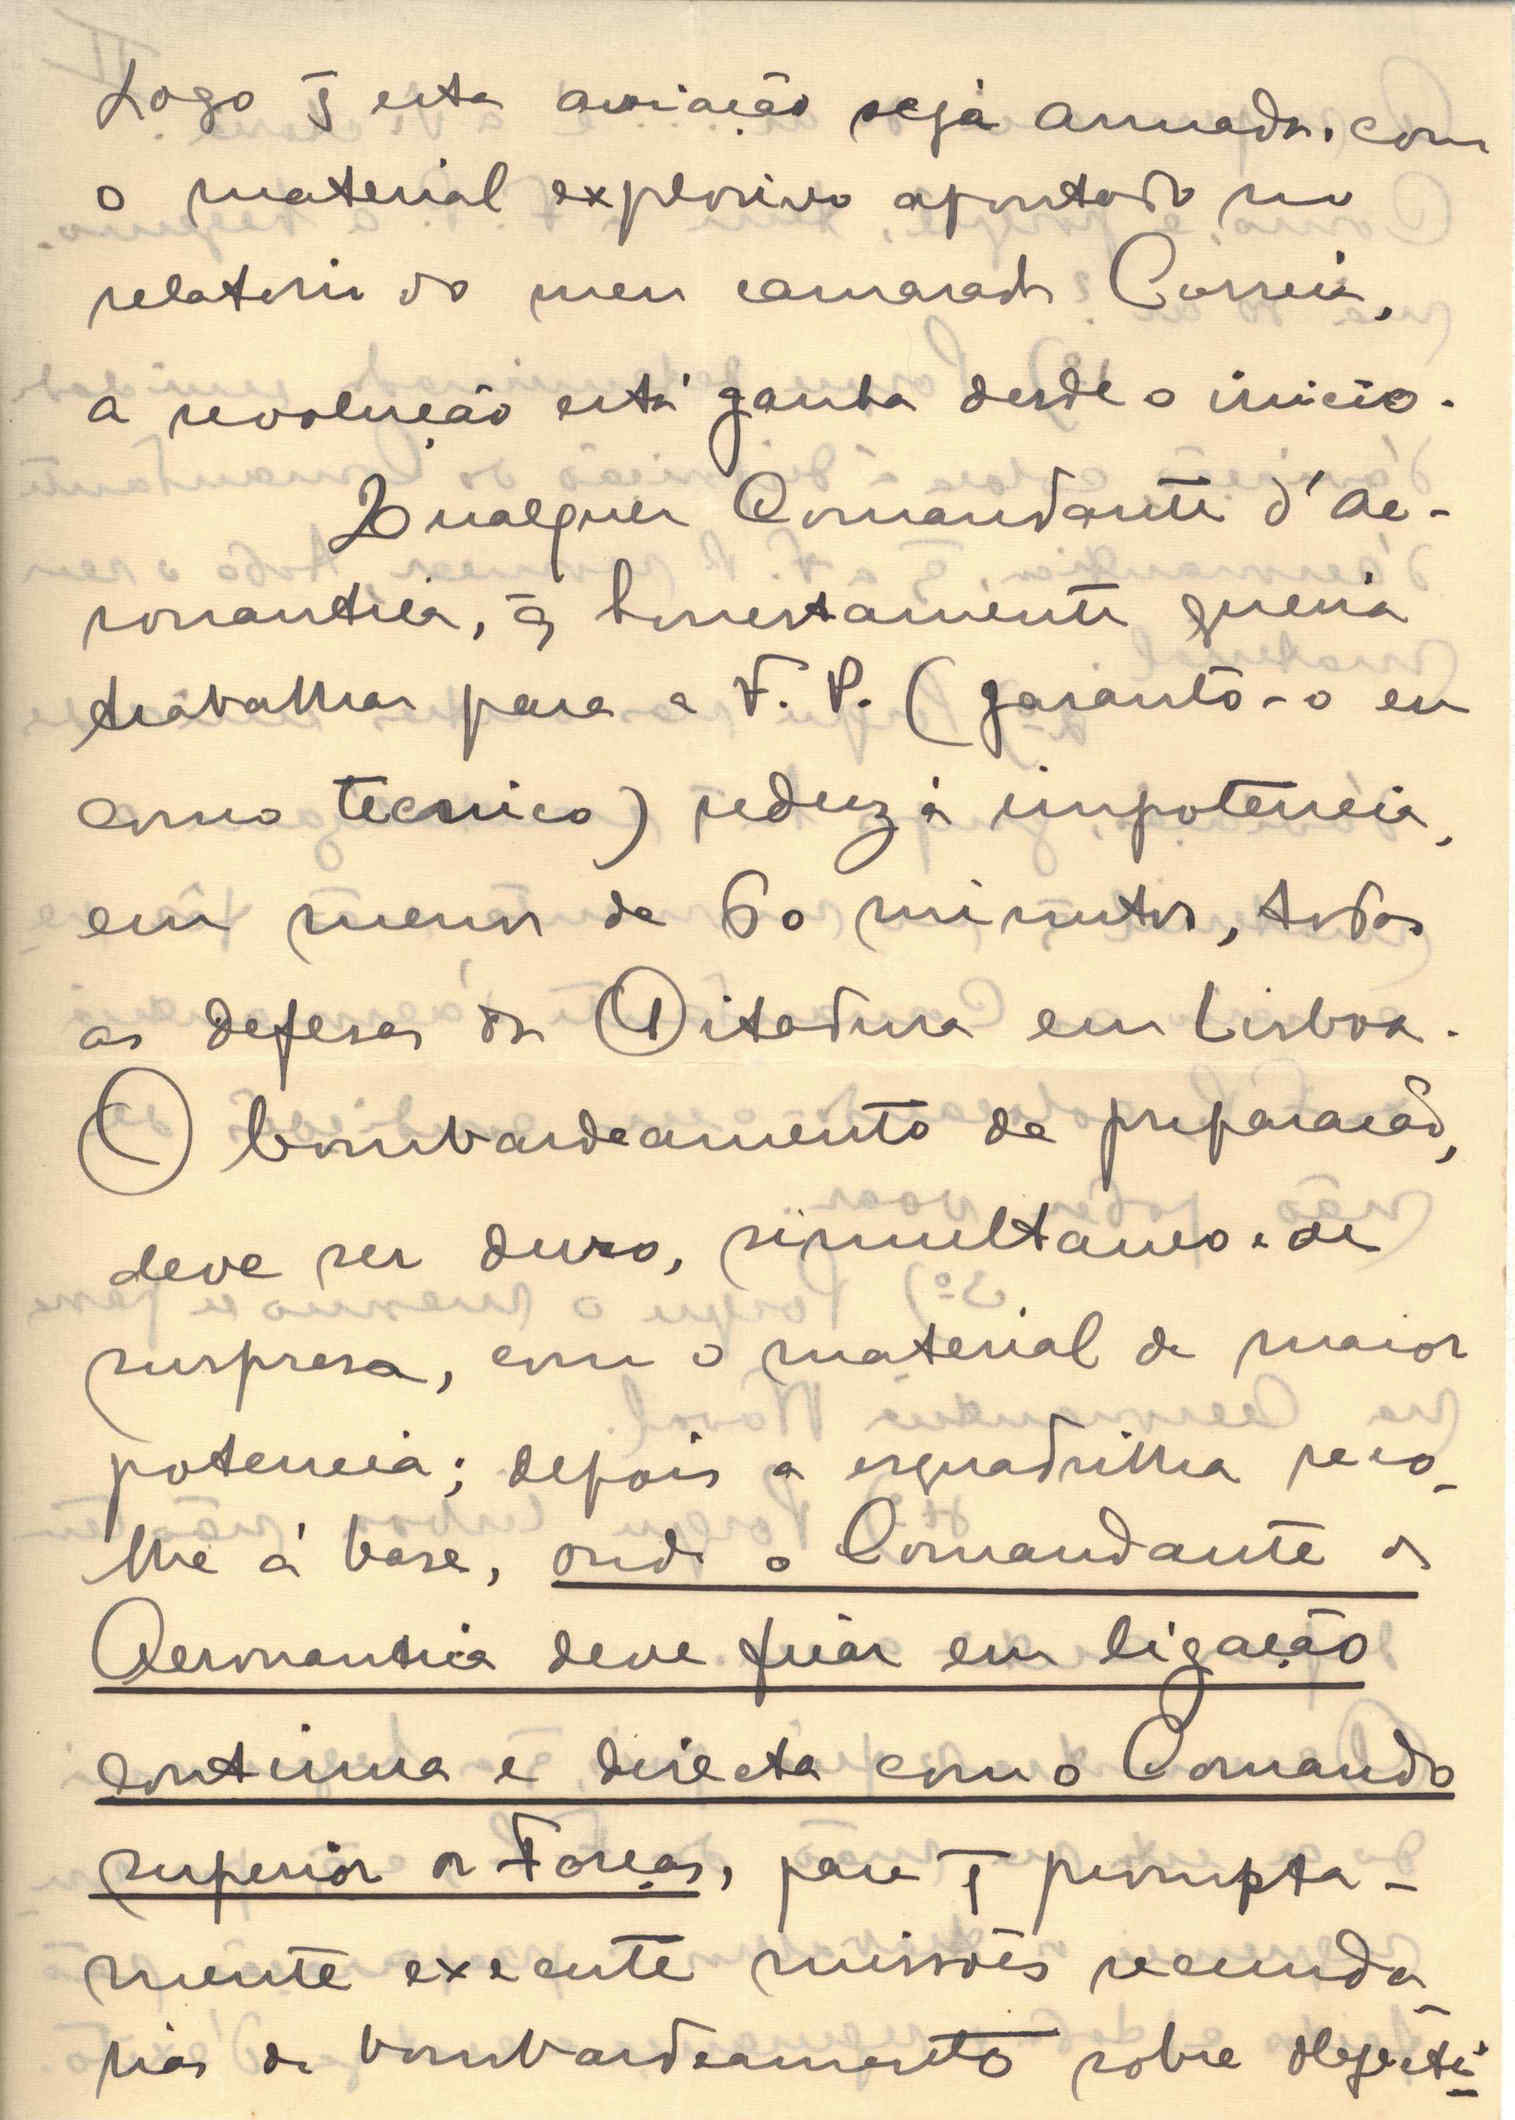 Logo q̃ esta aviação seja armada, com
o material explosivo apontado no
relatorio do meu camarada Correia,
a revolução está ganha desde o inicio.
Qualquer Comandante d'Ae-
ronautica, q̃ honestamente queria
trabalhar para a F. P. (garanto-o eu
como tecnico) reduz á impotencia,
em menos de 60 minutos, todas
as defesas da Ditadura em Lisboa.
O bombardeamento de preparação,
deve ser duro, simultaneo e de
surpresa, com o material de maior
potencia; depois a esquadrilha reco-
lhe á base, onde o Comandante da
Aeronautica deve ficar em ligação
continua e directa com o Comando
superior das Forças, para q̃ prompta-
mente execute missões secunda-
rias de bombardeamento sobre objecti-